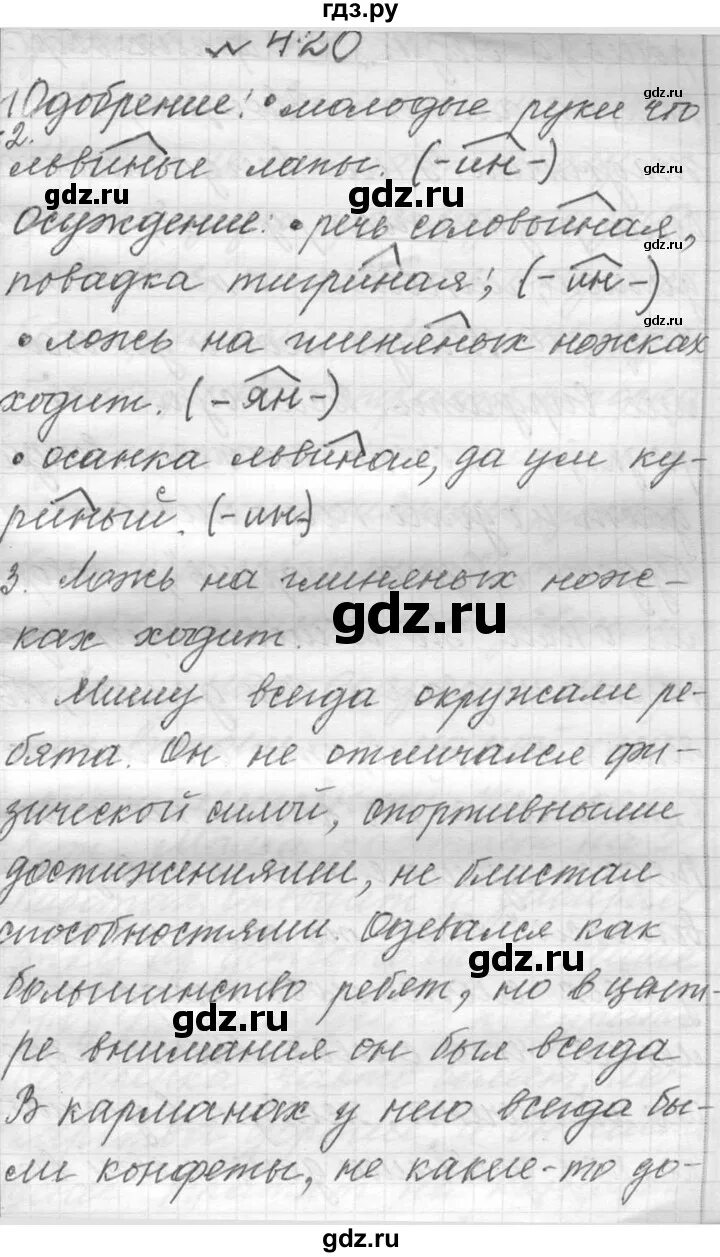 гдз.ру
№ 420
1. Одобрение: • молодые руки что
2.
львиные лапы. (-ин-)
Осуждение: • речь соловьиная,
повадка тигриная; (-ин-)
• ложь на глиняных ножках
ходит. (-ян-)
• осанка львиная, да ум ку-
риный. (-ин-)
3. Ложь на глиняных нож-
ках ходит.
Мишу всегда окружали ре-
бята. Он не отличался фи-
зической силой, спортивными
достижениями, не блистал
способностями. Одевался как
большинство ребят, но в цент-
ре внимания он был всегда
В карманах у него всегда бы-
ли конфеты, не какие-то до-
gdz.ru
gdz.ru
gdz.ru
gdz.ru
gdz.ru
gdz.ru
gdz.ru
gdz.ru
gdz.ru
gdz.ru
gdz.ru
gdz.ru